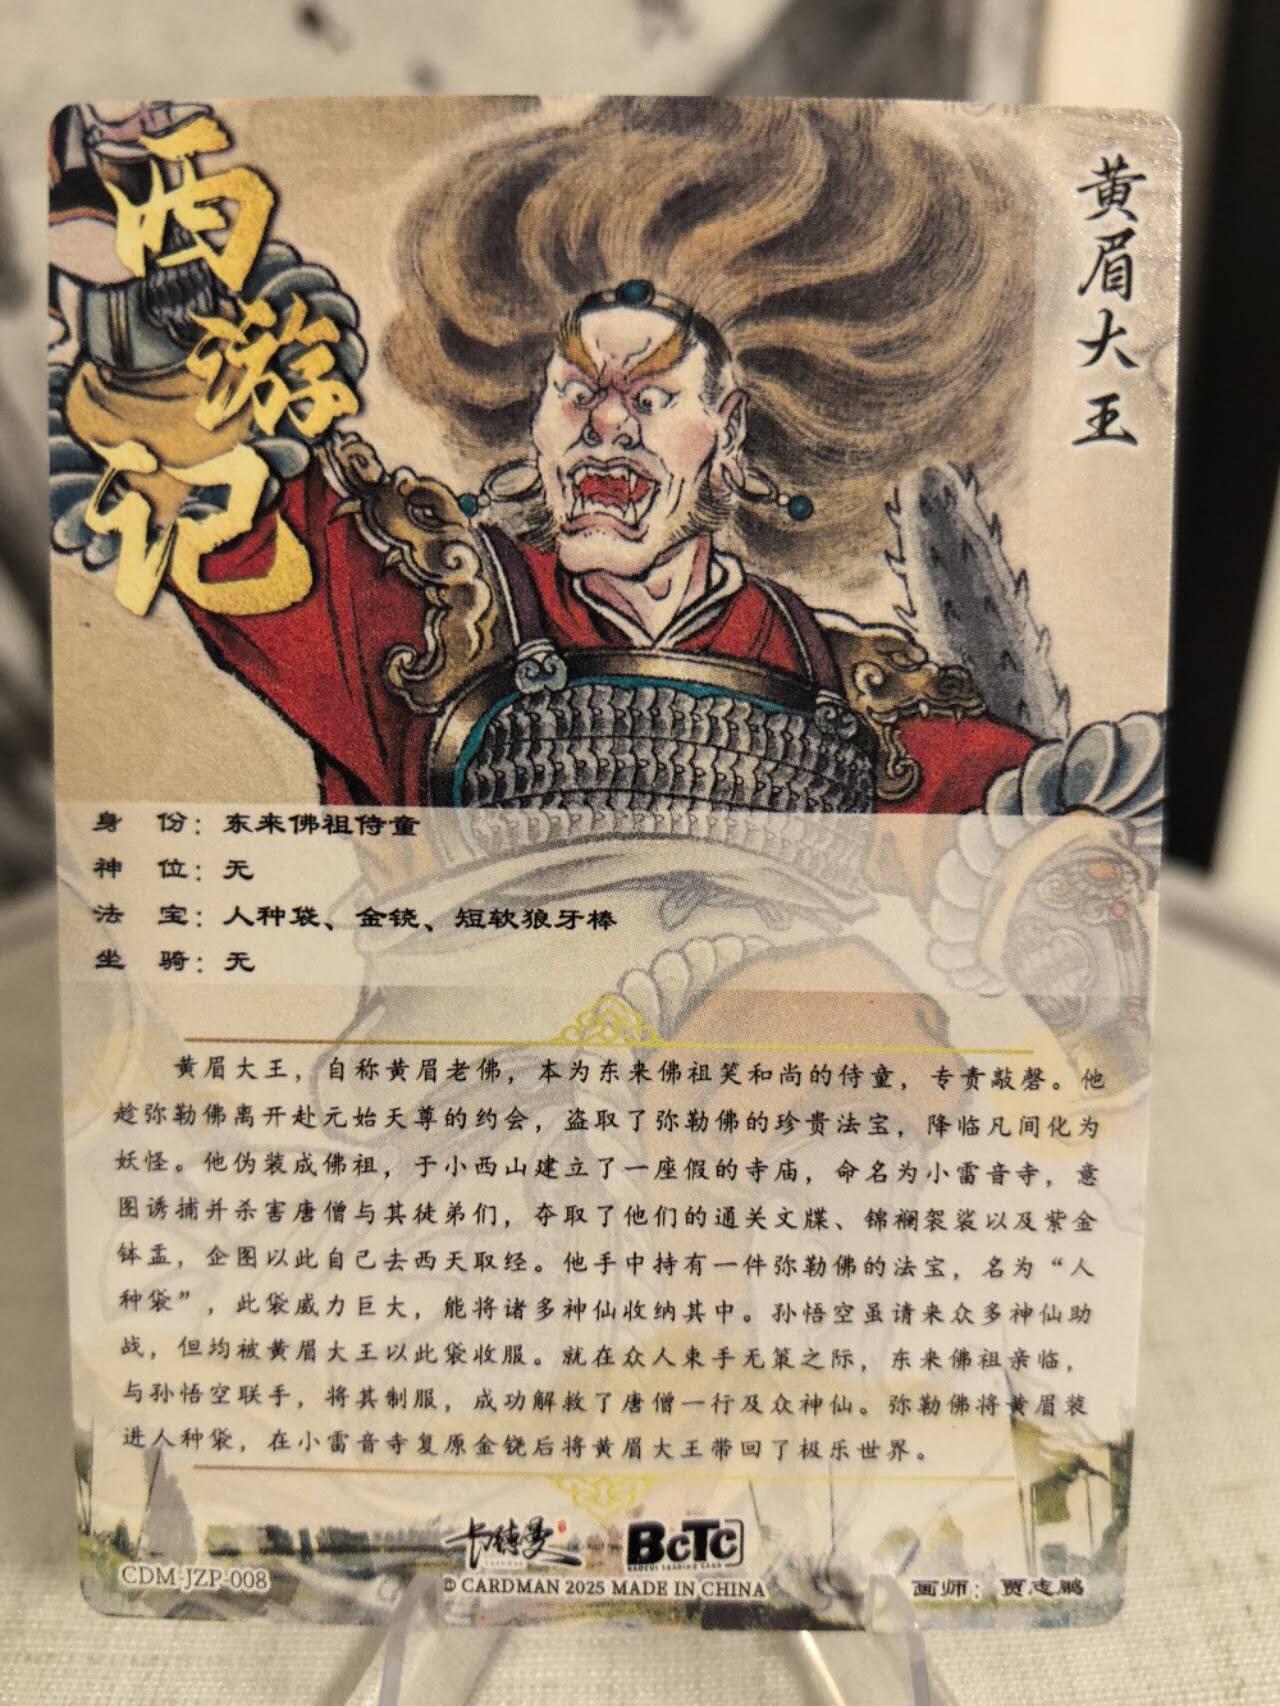 西游记
黄眉大王
身　份：东来佛祖侍童
神　位：无
法　宝：人种袋、金铙、短软狼牙棒
坐　骑：无
黄眉大王，自称黄眉老佛，本为东来佛祖笑和尚的侍童，专责敲磬。他
趁弥勒佛离开赴元始天尊的约会，盗取了弥勒佛的珍贵法宝，降临凡间化为
妖怪。他伪装成佛祖，于小西山建立了一座假的寺庙，命名为小雷音寺，意
图诱捕并杀害唐僧与其徒弟们，夺取了他们的通关文牒、锦襕袈裟以及紫金
钵盂，企图以此自己去西天取经。他手中持有一件弥勒佛的法宝，名为“人
种袋”，此袋威力巨大，能将诸多神仙收纳其中。孙悟空虽请来众多神仙助
战，但均被黄眉大王以此袋收服。就在众人束手无策之际，东来佛祖亲临，
与孙悟空联手，将其制服，成功解救了唐僧一行及众神仙。弥勒佛将黄眉装
进人种袋，在小雷音寺复原金铙后将黄眉大王带回了极乐世界。
卡德曼
BCTC
CDM-JZP-008
© CARDMAN 2025 MADE IN CHINA
画师：贾志鹏